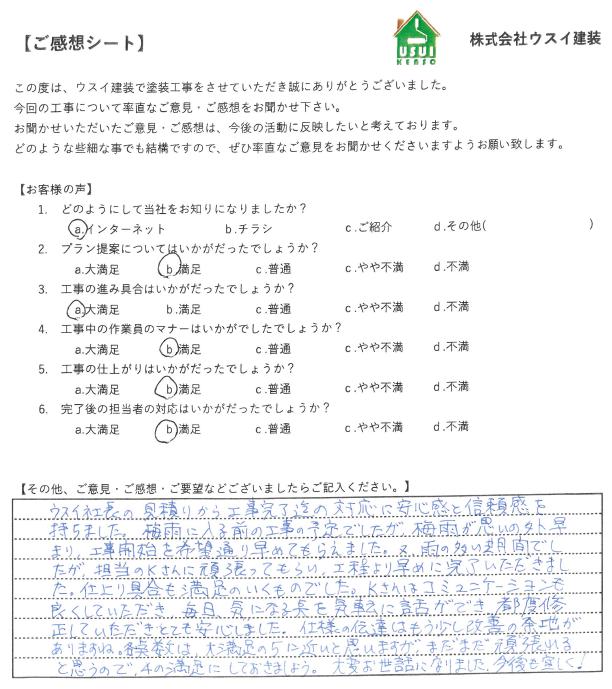 【ご感想シート】
USUI
KENSO
株式会社ウスイ建装
この度は、ウスイ建装で塗装工事をさせていただき誠にありがとうございました。
今回の工事について率直なご意見・ご感想をお聞かせ下さい。
お聞かせいただいたご意見・ご感想は、今後の活動に反映したいと考えております。
どのような些細な事でも結構ですので、ぜひ率直なご意見をお聞かせくださいますようお願い致します。
【お客様の声】
1. どのようにして当社をお知りになりましたか？
a.インターネット b.チラシ c.ご紹介 d.その他( )
2. プラン提案についてはいかがだったでしょうか？
a.大満足 b.満足 c.普通 c.やや不満 d.不満
3. 工事の進み具合はいかがだったでしょうか？
a.大満足 b.満足 c.普通 c.やや不満 d.不満
4. 工事中の作業員のマナーはいかがでしたでしょうか？
a.大満足 b.満足 c.普通 c.やや不満 d.不満
5. 工事の仕上がりはいかがだったでしょうか？
a.大満足 b.満足 c.普通 c.やや不満 d.不満
6. 完了後の担当者の対応はいかがだったでしょうか？
a.大満足 b.満足 c.普通 c.やや不満 d.不満
【その他、ご意見・ご感想・ご要望などございましたらご記入ください。】
ウスイ社長の見積りから工事完了迄の対応に安心感と信頼感を
持ちました。梅雨に入る前の工事の予定でしたが、梅雨が思いの外早
まり、工事開始を希望通り早めてもらえました。又、雨の多い期間でし
たが、担当のKさんに頑張ってもらい、工程より早めに完了いただきまし
た。仕上り具合も満足のいくものでした。Kさんはコミュニケーションも
良くしていただき、毎日、気になる点を気軽に話ができ、都度修
正していただきとても安心しました。仕様の伝達はもう少し改善の余地が
ありますね。は、大満足の5に近いと思いますが、まだまだ頑張れる
と思うので、4の満足にしておきましょう。大変お世話になりました。今後も宜しく!